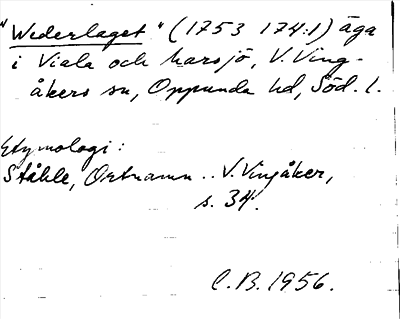 "Wederlaget" (1753 174:1) äga
i Viala och Marsjö, V. Ving-
åkers sn, Oppunda hd, Söd. l.
Etymologi:
Ståhle, Ortnamn .. V. Vingåker,
s. 34.
C.B. 1956.